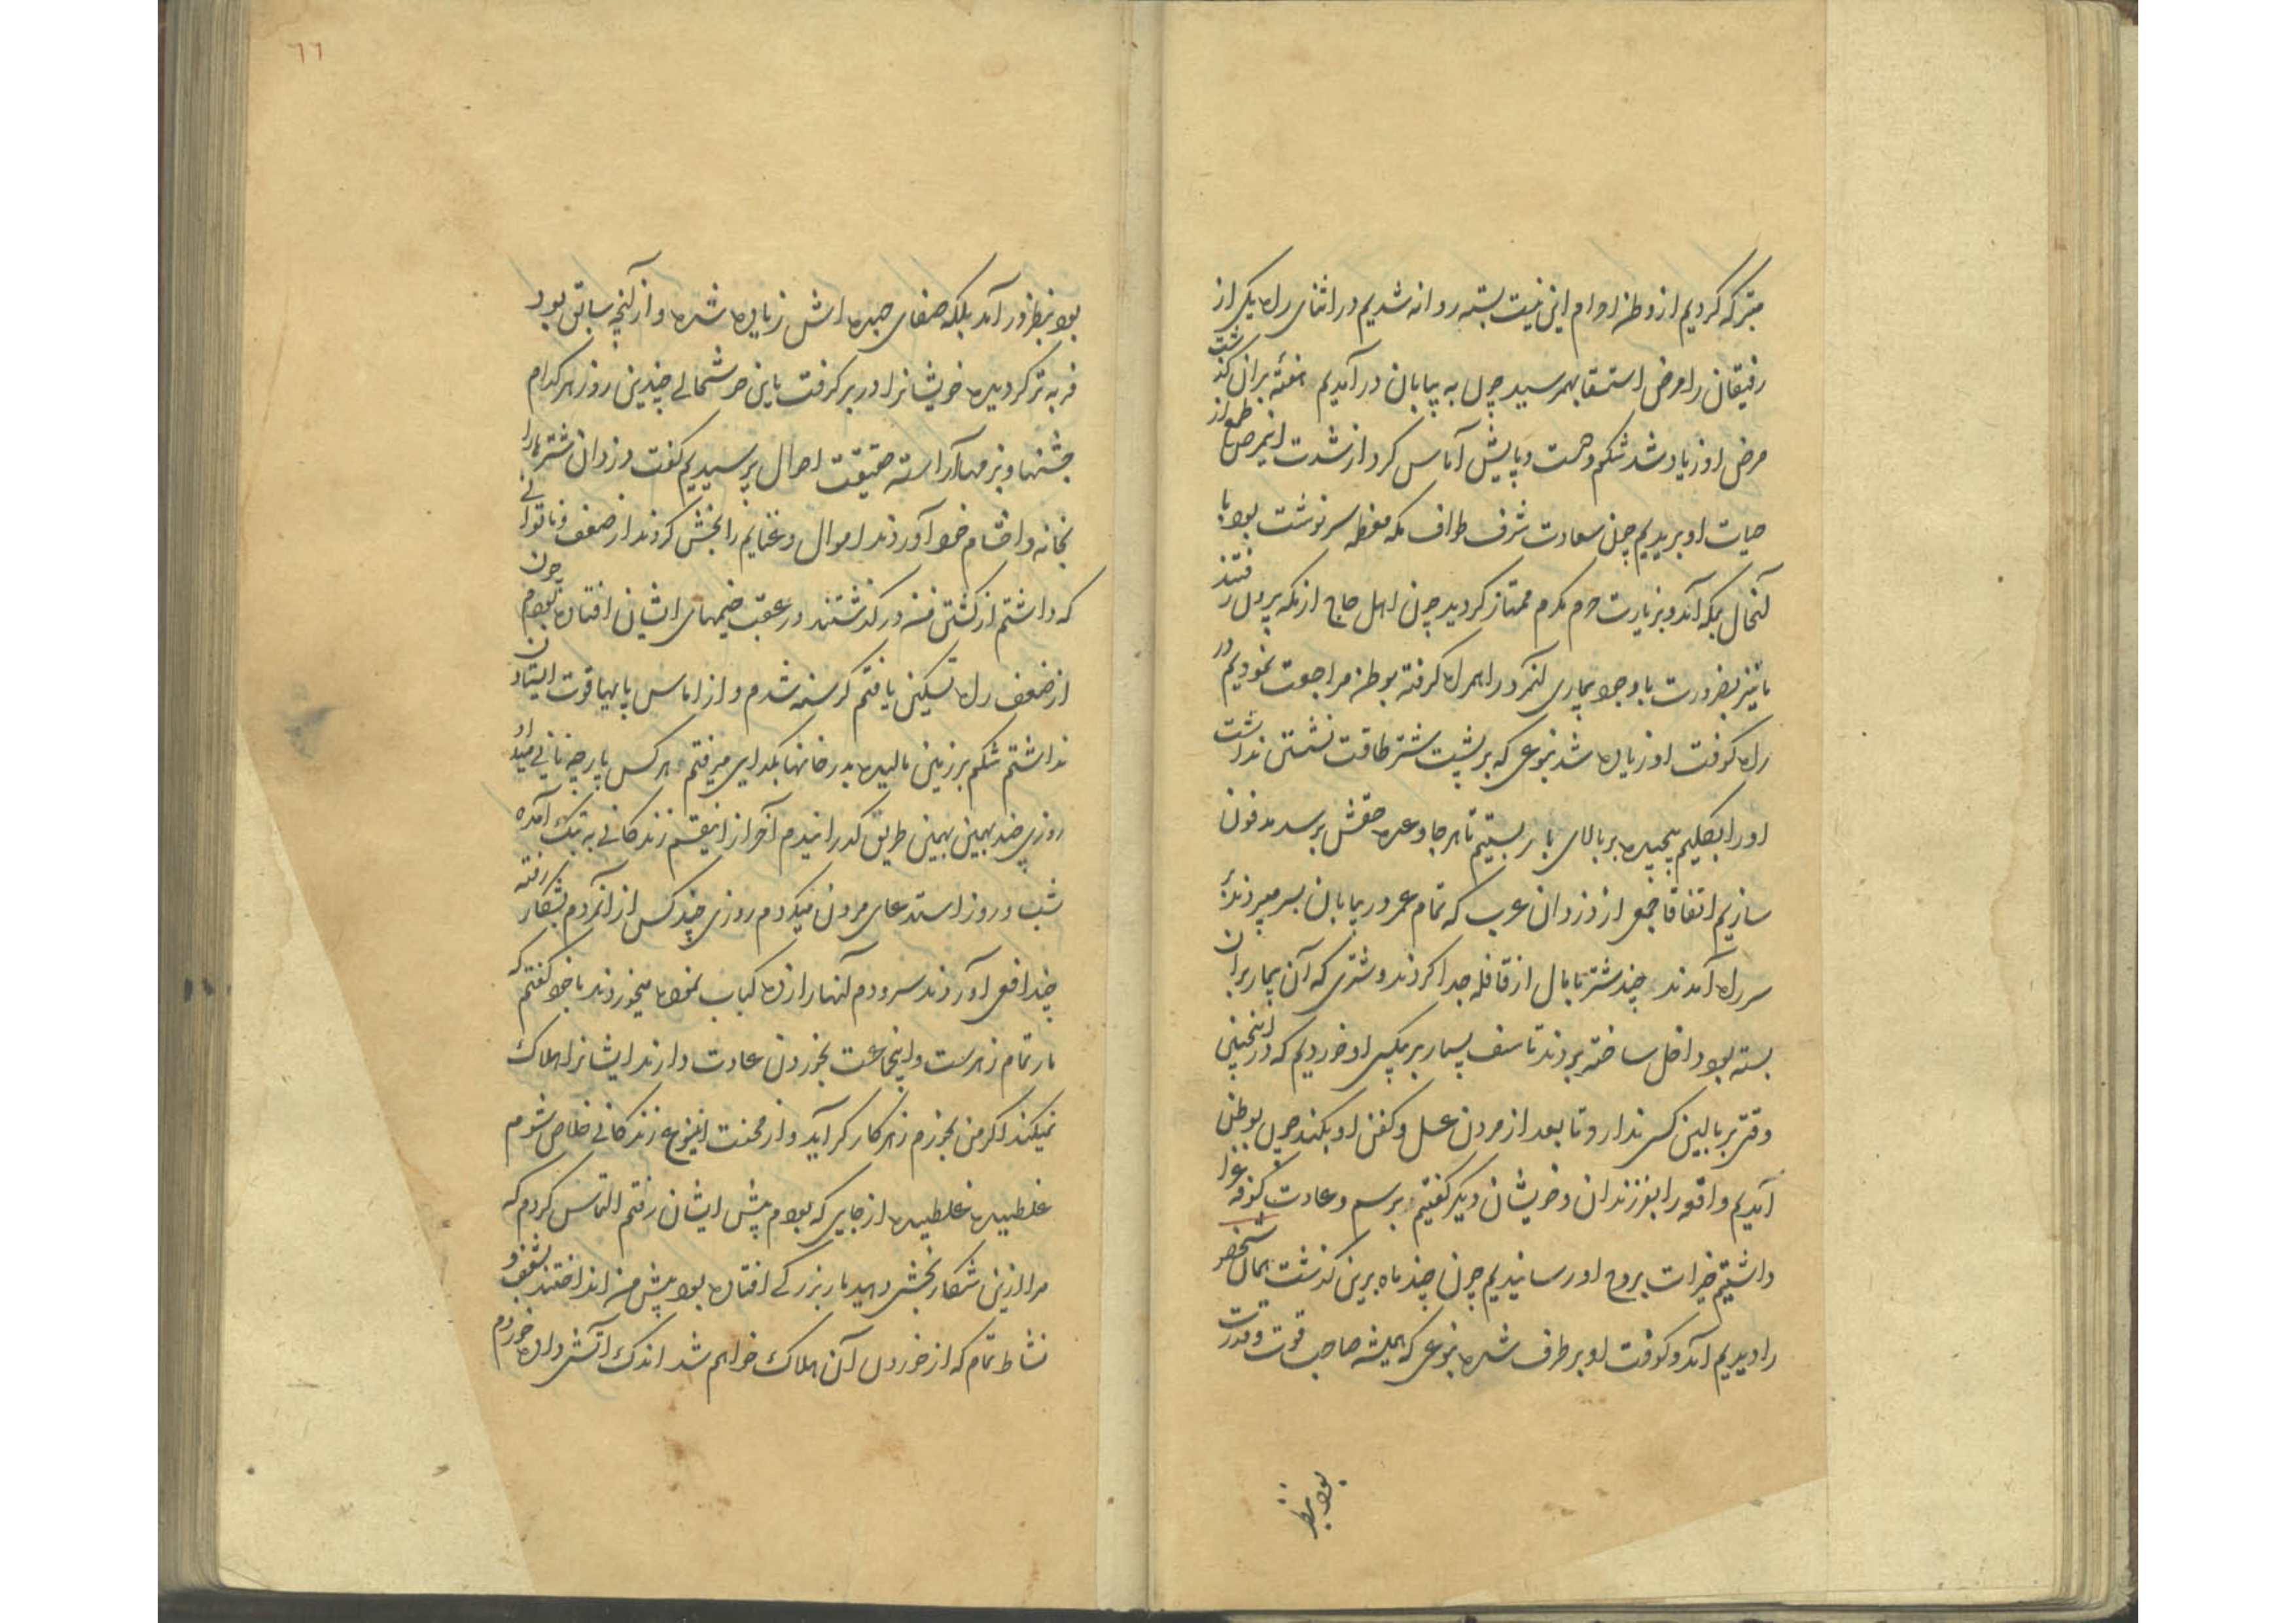 متبرکه کردیم از وطن احرام این نیت بسته روانه شدیم در اثنای راه یکی از
رفیقان را مرض استسقا بهمرسید چون به بیابان درآمدیم هفتهٔ بران گذشت
مرض او زیاد شد شکم و دست و پایش آماس کرد از شدت این مرض طمع از
حیات او بریدیم چون سعادت شرف طواف مکه معظمه سرنوشت بود با
آنحال بمکه آمد و بزیارت حرم مکرم ممتاز گردید چون اهل حاج از مکه بیرون رفتند
ما نیز بضرورت با وجود بیماری آنمرد را همراه گرفته بوطن مراجعت نمودیم در
راه کوفت او زیاده شد بنوعی که بر پشت شتر طاقت نشستن نداشت
او را بگلیم پیچیده بر بالای بار بستیم تا هر جا وعده حقش برسد مدفون
سازیم اتفاقا جمعی از دزدان عرب که تمام عمر در بیابان بسر میبردند
سر راه آمدند چند شتر با مال از قافله جدا کردند و شتری که آن بیمار بران
بسته بود داخل ساخته بردند تاسف بسیار بر بیکسی او خوردیم که در اینچنین
وقتی بر بالین کسی ندارد تا بعد از مردن غسل و کفن او بکند چون بوطن
آمدیم واقعه را بفرزندان و خویشان دیگر گفتیم برسم و عادت کوفه عزا
داشتیم خیرات بروح او رسانیدیم چون چند ماه برین گذشت همان شخص
را دیدیم آمد و کوفت او برطرف شده بنوعی که همیشه صاحب قوت و قدرت
بود بنظر
٦٦
بود بنظر درآمد بلکه صفای چهره اش زیاده شده و از آنچه سابق بود
فربه تر گردیده خویشانرا در بر گرفت باین خوشحالی چندین روز هر کدام
جشنها و بزمها آراسته حقیقت احوال پرسیدیم گفت دزدان شتر ما را
بخانه و اقشام خود آوردند اموال و غنایم را بخش کردند از ضعف و ناتوانی
که داشتم از کشتن من درگذشتند در عقب خیمهای ایشان افتاده بودم چون
از ضعف راه تسکین یافتم گرسنه شدم و از اماس پایها قوت ایستادن
نداشتم شکم بر زمین مالیده بدر خانها بگدایی میرفتم هر کس پارچه نانی میداد
روزی چند بهمین بهمین طریق گذرانیدم آخر از اینقسم زندگانی به تنگ آمده
شب و روز استدعای مردن میکردم روزی چند کس از آنمردم بشکار رفته
چند افعی آوردند سر و دم آنها را زده کباب نموده میخوردند با خود گفتم که
مار تمام زهرست و اینجماعت بخوردن عادت دارند ایشانرا هلاک
نمیکند اگر من بخورم زهر کارگر آید و از محنت اینوع زندگانی خلاص شوم
غلطیده غلطیده از جایی که بودم پیش ایشان رفتم التماس کردم که
مرا ازین شکار بخشی دهید مار بزرگی افتاده بود پیش من انداختند بشعف و
نشاط تمام که از خوردن آن هلاک خواهم شد اندک آتش داده خوردم